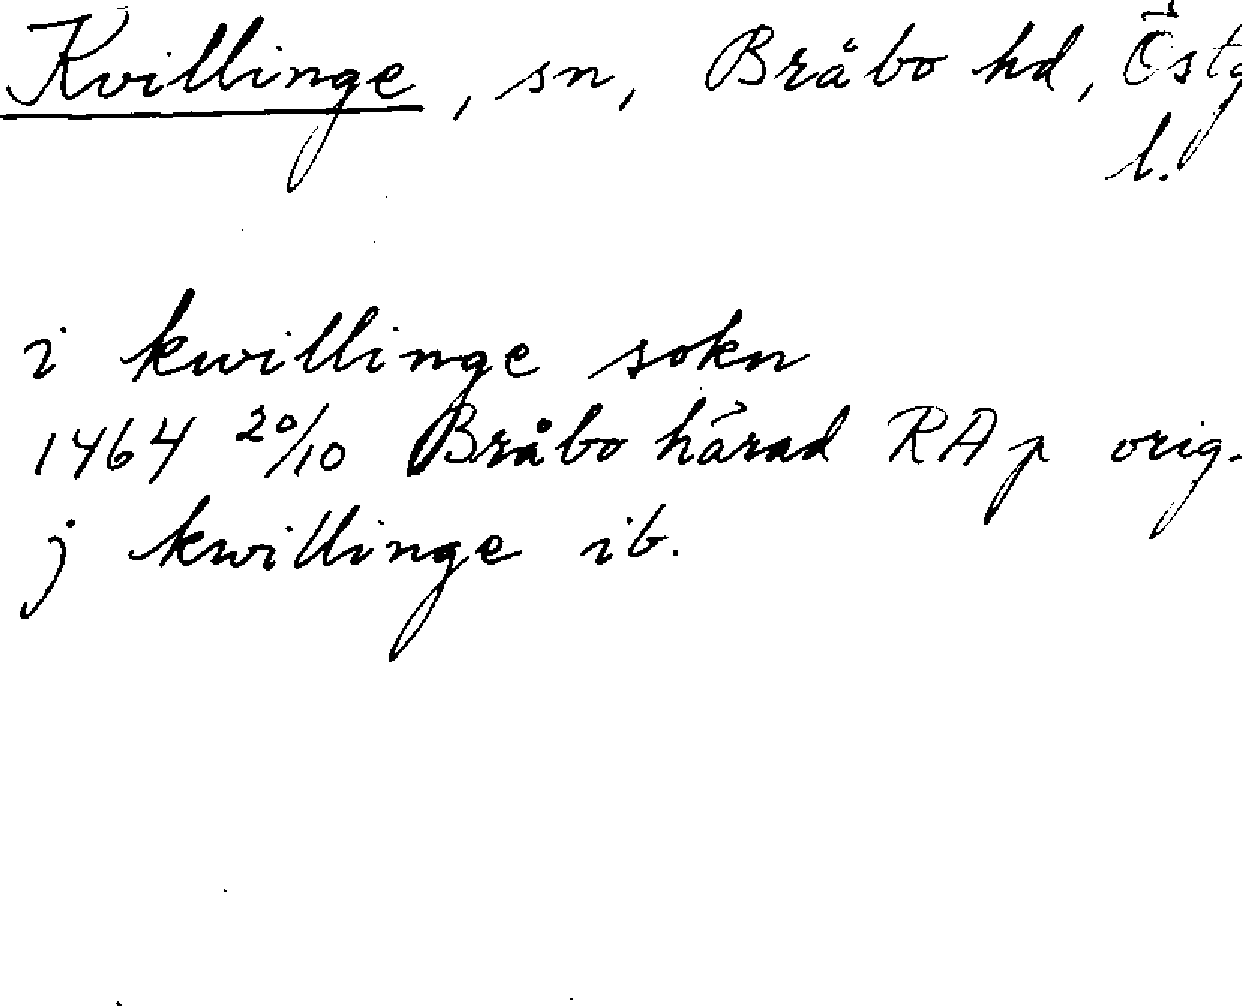 Kvillinge, sn, Bråbo hd, Östg
l.
i kwillinge sokn
1464 20/10 Bråbo härad RAp orig.
j kwillinge ib.